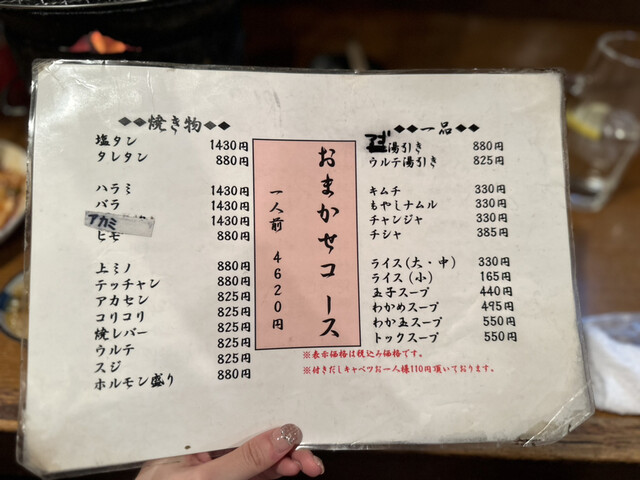 ◆◆焼き物◆◆
塩タン 1430円
タレタン 880円
ハラミ 1430円
バラ 1430円
アカミ 1430円
ヒモ 880円
上ミノ 880円
テッチャン 880円
アカセン 825円
コリコリ 825円
焼レバー 825円
ウルテ 825円
スジ 825円
ホルモン盛り 880円
おまかせコース
一人前 4620円
◆◆一品◆◆
湯引き 880円
ウルテ湯引き 825円
キムチ 330円
もやしナムル 330円
チャンジャ 330円
チシャ 385円
ライス(大・中) 330円
ライス(小) 165円
玉子スープ 440円
わかめスープ 495円
わか玉スープ 550円
トックスープ 550円
※表示価格は税込み価格です。
※付きだしキャベツお一人様110円頂いております。